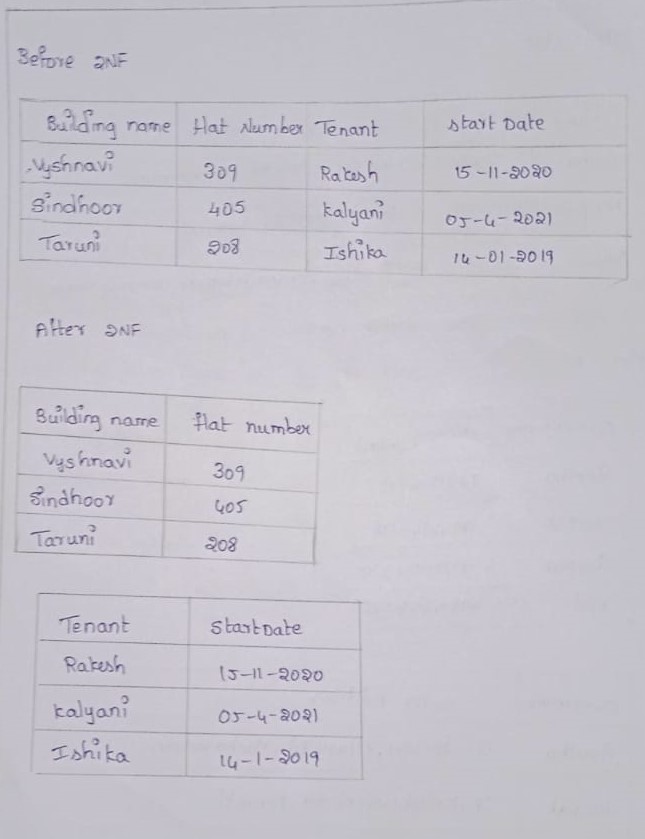 Before 2NF
Building name Flat Number Tenant Start Date
Vyshnavi 309 Rakesh 15-11-2020
Sindhoor 405 Kalyani 05-4-2021
Taruni 208 Ishika 14-01-2019
After 2NF
Building name flat number
Vyshnavi 309
Sindhoor 405
Taruni 208
Tenant StartDate
Rakesh 15-11-2020
Kalyani 05-4-2021
Ishika 14-1-2019